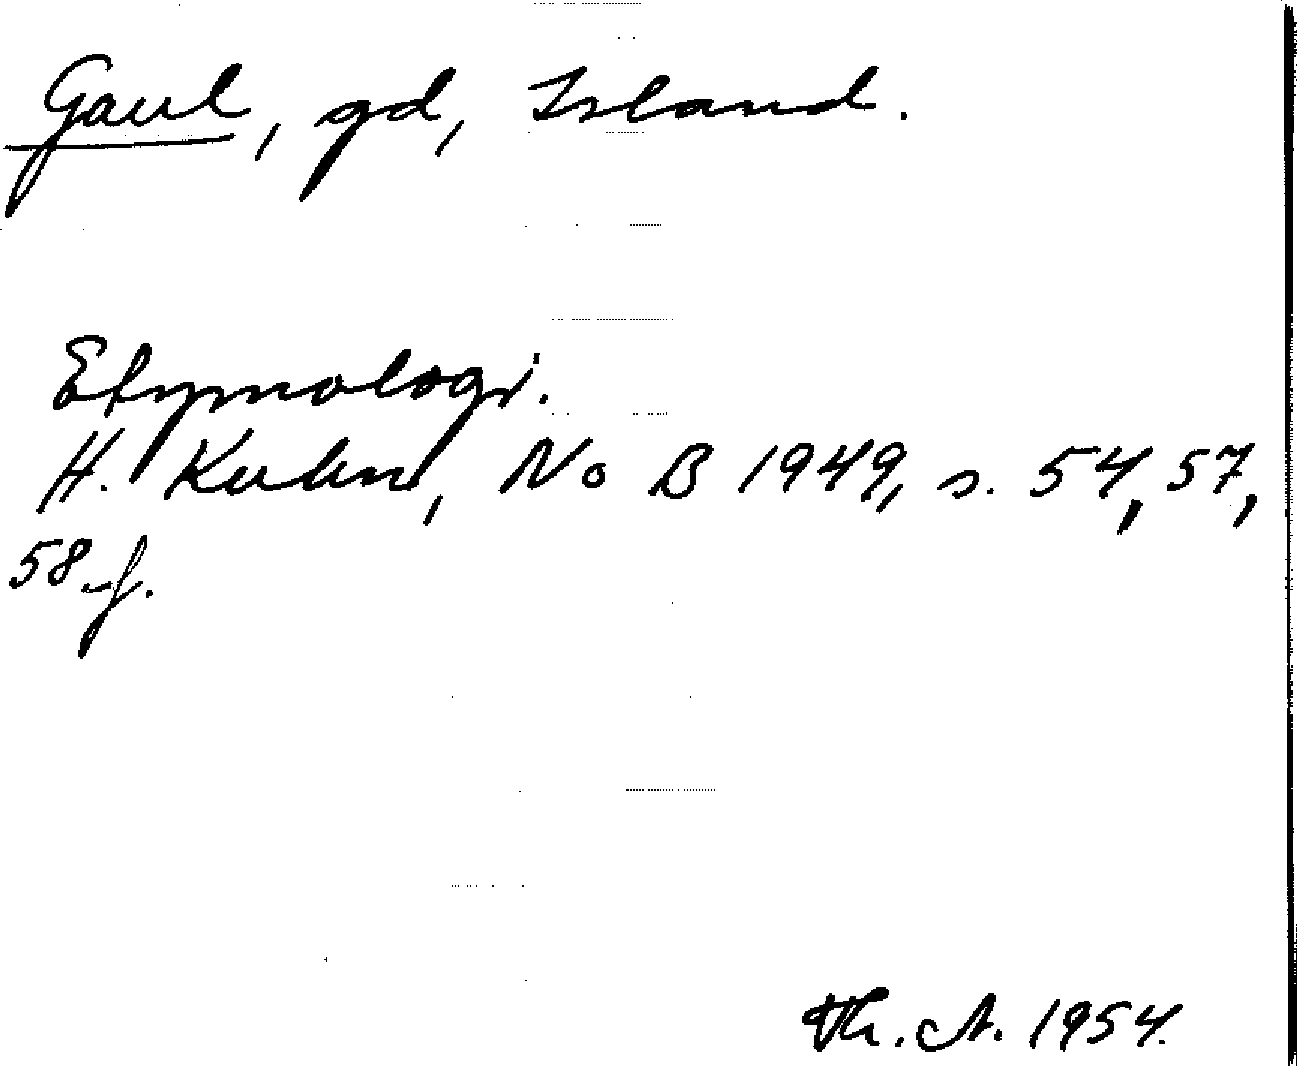 Gaul, gd, Island.
Etymologi.
H. Kuhn, No B 1949, s. 54, 57,
58 f.
Th. A. 1954.